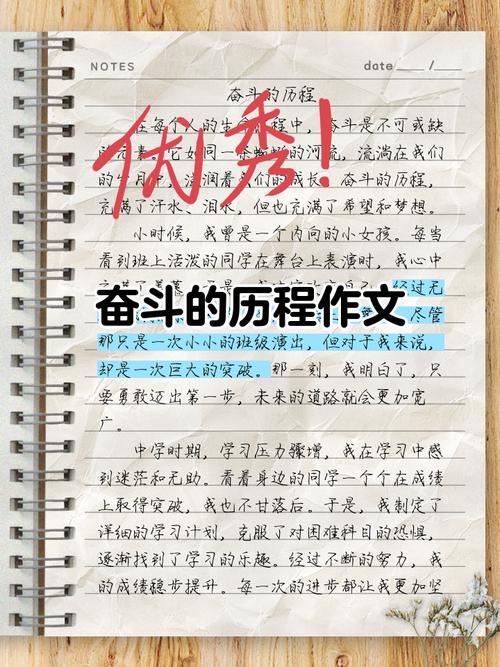 NOTES
date ____ / ____
奋斗的历程
优秀!
在每个人的生 程中，奋斗是不可或缺
元素。它如同一条蜿蜒的河流，流淌在我们
的岁月中，滋润着我们的成长。奋斗的历程，
充满了汗水、泪水，但也充满了希望和梦想。
小时候，我曾是一个内向的小女孩。每当
看到班上活泼的同学在舞台上表演时，我心中
经过无
奋斗的历程作文
尽管
那只是一次小小的班级演出，但对于我来说，
却是一次巨大的突破。那一刻，我明白了，只
要勇敢迈出第一步，未来的道路就会更加宽
广。
中学时期，学习压力骤增，我在学习中感
到迷茫和无助。看着身边的同学一个个在成绩
上取得突破，我也不甘落后。于是，我制定了
详细的学习计划，克服了对困难科目的恐惧，
逐渐找到了学习的乐趣。经过不断的努力，我
的成绩稳步提升。每一次的进步都让我更加坚